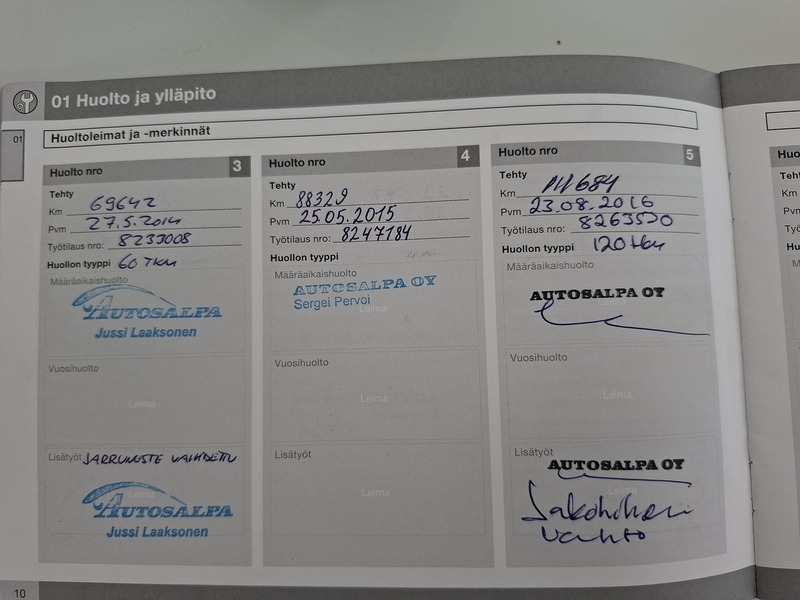 01 Huolto ja ylläpito
01
Huoltoleimat ja -merkinnät
Huolto nro 3
Tehty
Km 69642
Pvm 27.5.2014
Työtilaus nro: 8233008
Huollon tyyppi 60 TKM
Määräaikaishuolto
AUTOSALPA
Jussi Laaksonen
Vuosihuolto
Leima
Lisätyöt JARRUNESTE VAIHDETTU
Leima
AUTOSALPA
Jussi Laaksonen
Huolto nro 4
Tehty
Km 88329
Pvm 25.05.2015
Työtilaus nro: 8247184
Huollon tyyppi
Määräaikaishuolto
AUTOSALPA OY
Sergei Pervoi
Leima
Vuosihuolto
Leima
Lisätyöt
Leima
Huolto nro 5
Tehty
Km 111684
Pvm 23.08.2016
Työtilaus nro: 8263530
Huollon tyyppi 120 tkm
Määräaikaishuolto
AUTOSALPA OY
Leima
Vuosihuolto
Leima
Lisätyöt
AUTOSALPA OY
Leima
Jakohihnan
vaihto
10
Huo
Teht
Km
Pvm
Työt
Huo
Mä